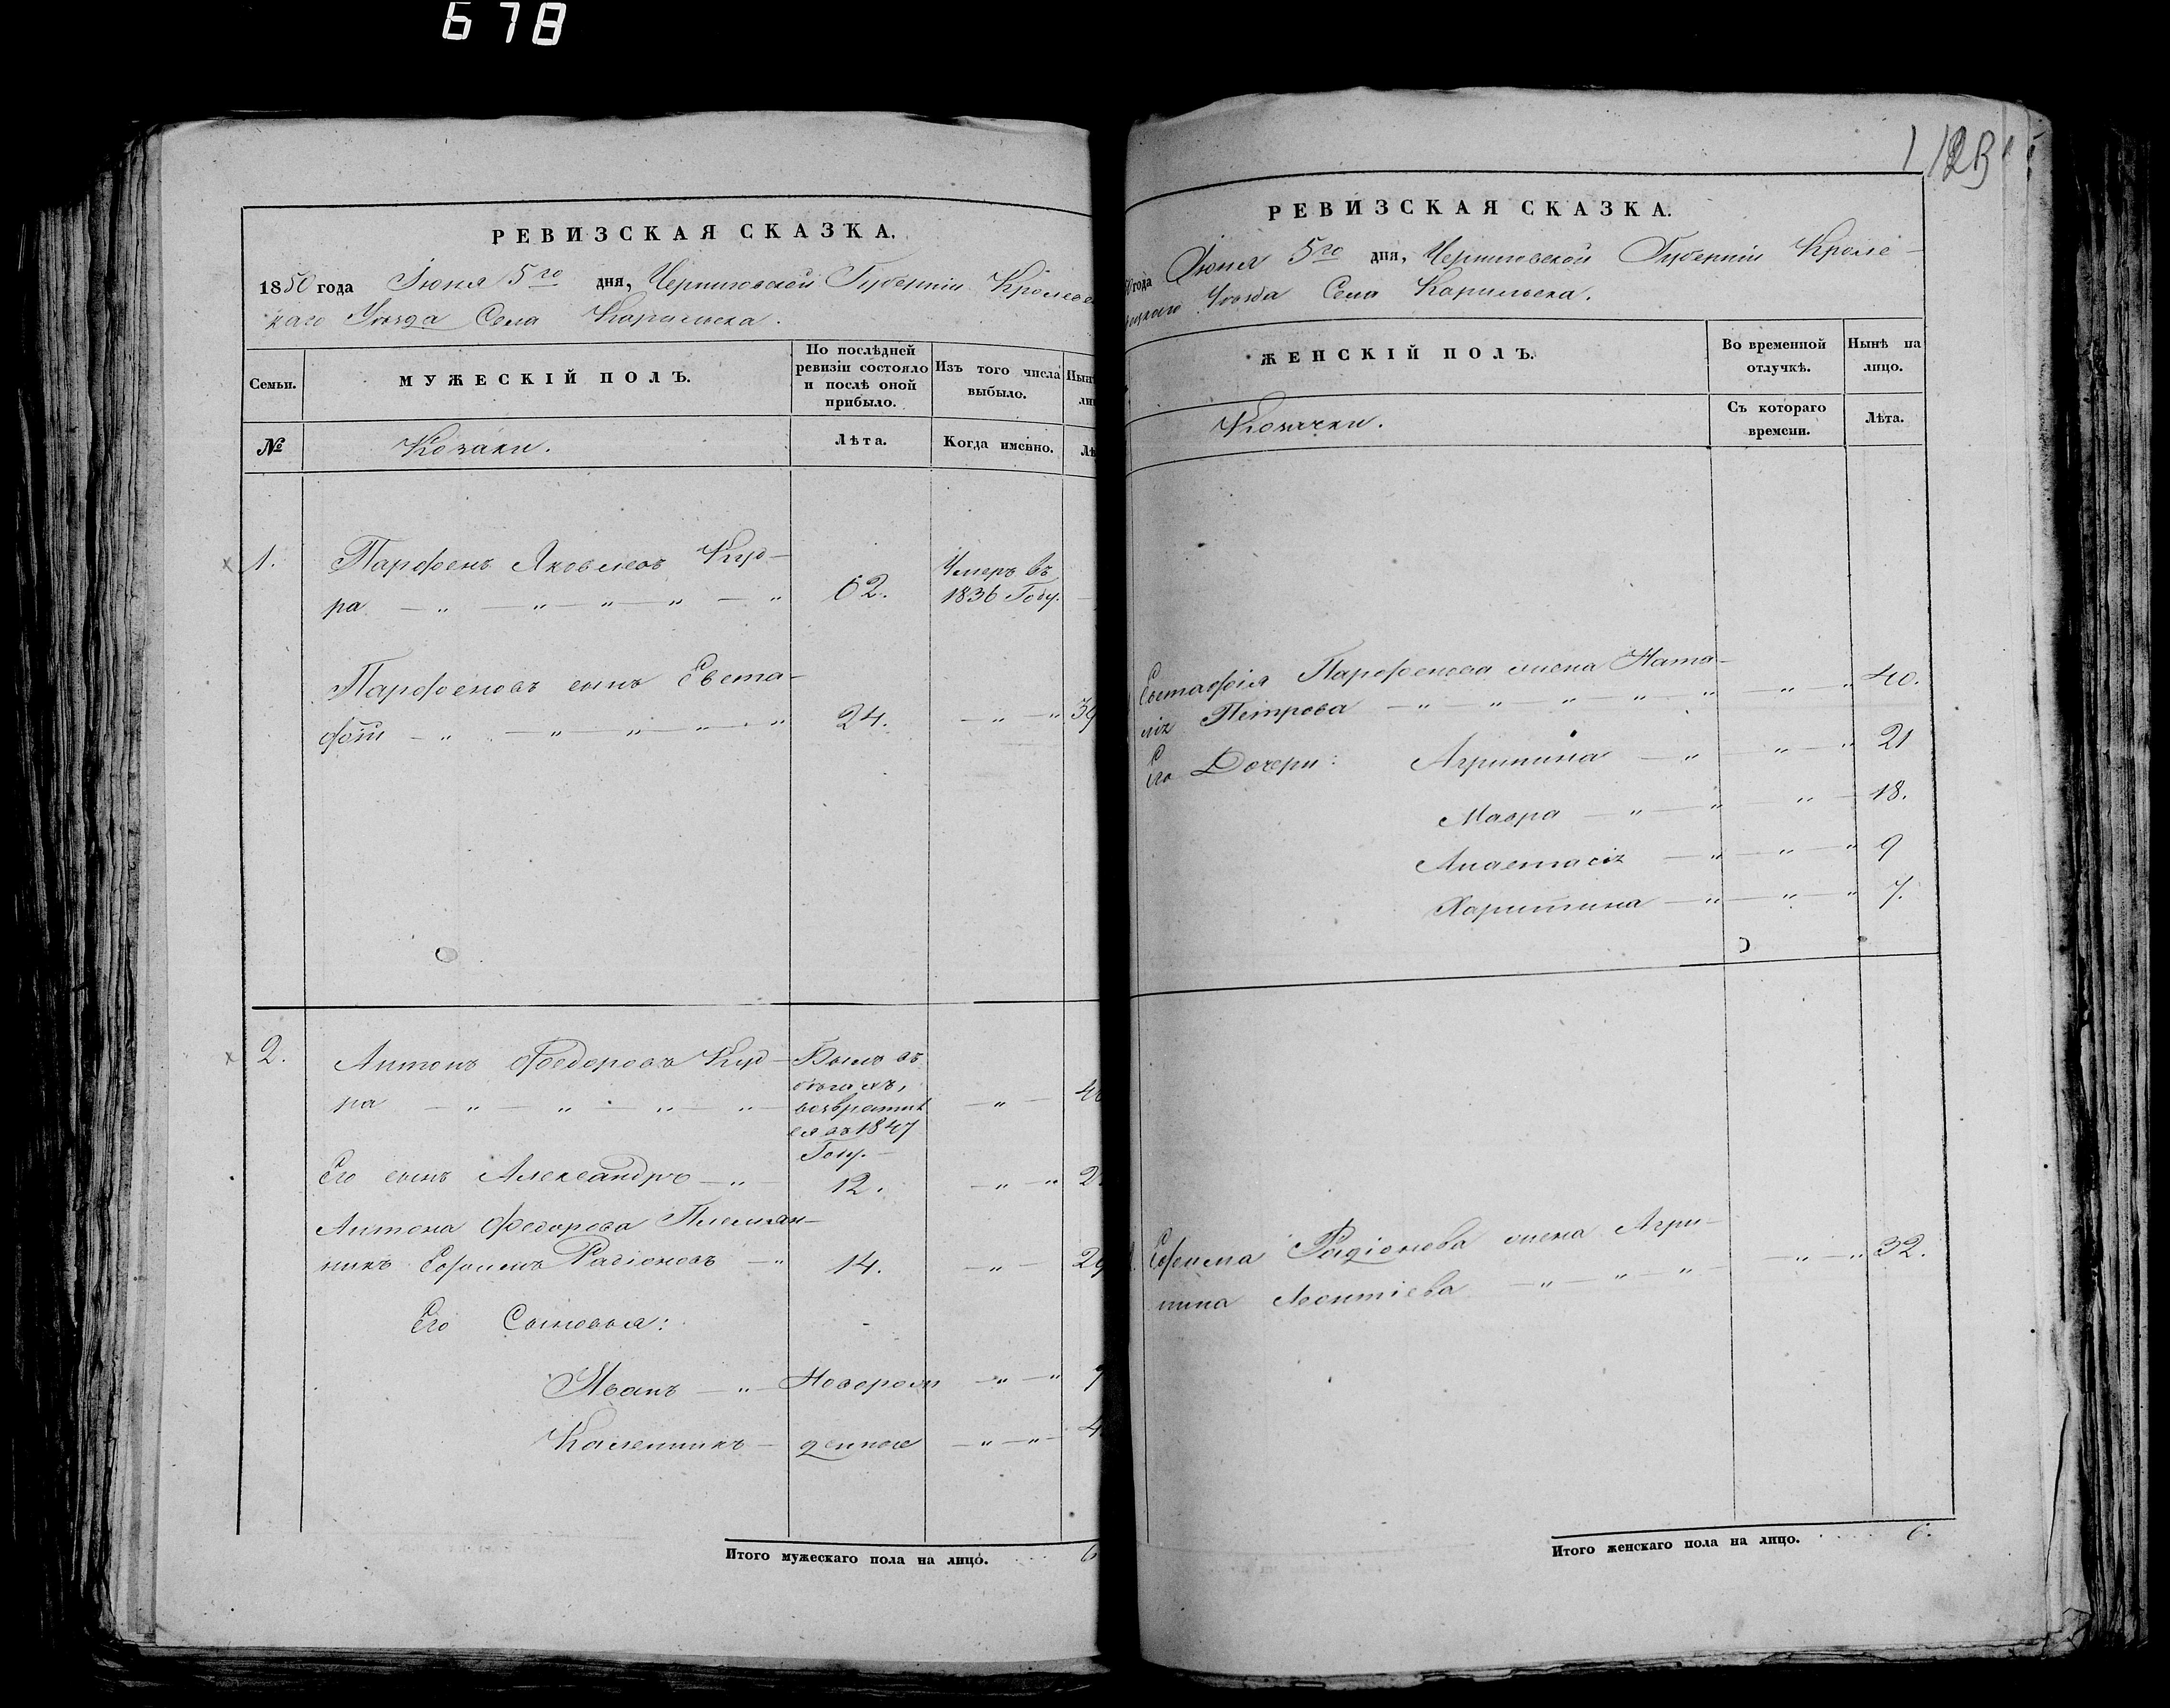 678
РЕВИЗСКАЯ СКАЗКА.
1850 года Июня 5го дня, Черниговской Губернии Кролеве
каго Уезда Села Карильска.
Семьи.
МУЖЕСКІЙ ПОЛЪ.
По послѣдней
ревизіи состояло
и послѣ оной
прибыло.
Изъ того числа
выбыло.
№
Козаки.
Лѣта.
Когда именно.
1.
Парфенъ Яковлевъ Кур-
ра
62.
Умеръ въ
1836 Году.
Парфеновъ сынъ Евста-
фій
24.
39
2.
Антонъ Федоровъ Кур-
ра
Былъ въ
бѣгахъ,
возвратил
ся въ 1847
Году.
Его сынъ Александръ
12.
Антона Федорова Племян-
никъ Ефимъ Радіоновъ
14.
29
Его Сыновья:
Иванъ
Новорож
Калленикъ
денные
4
Итого мужескаго пола на лицо.
6
РЕВИЗСКАЯ СКАЗКА.
года Июня 5го дня, Черниговской Губерніи Кроле-
вецкаго Уѣзда Села Карильска.
ЖЕНСКІЙ ПОЛЪ.
Во временной
отлучкѣ.
Нынѣ на
лицо.
Козачки.
Съ котораго
времени.
Лѣта.
Евстафія Парфенова жена Ната-
лія Петрова
40.
Его Дочери: Агрипина
21
Мавра
18.
Анастасія
9
Харитина
7.
Ефима Радіонова жена Агри-
пина Леонтіева
32.
Итого женскаго пола на лицо.
6.